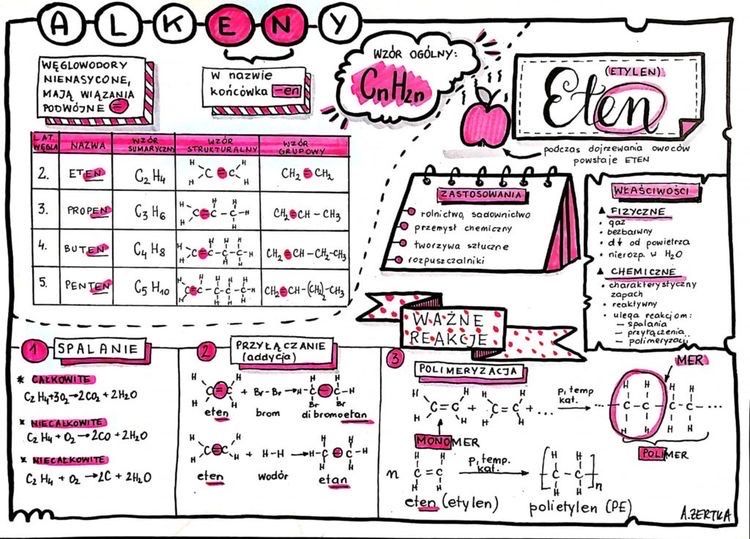 ALKENY
WĘGLOWODORY
NIENASYCONE,
MAJĄ WIĄZANIA
PODWÓJNE =
W nazwie
końcówka -en
WZÓR OGÓLNY:
CnH2n
(ETYLEN)
Eten
podczas dojrzewania owoców
powstaje ETEN
LAT. WĘGLA NAZWA WZÓR SUMARYCZNY WZÓR STRUKTURALNY WZÓR GRUPOWY
2. ETEN C2H4 CH2=CH2
3. PROPEN C3H6 CH2=CH-CH3
4. BUTEN C4H8 CH2=CH-CH2-CH3
5. PENTEN C5H10 CH2=CH-(CH2)2-CH3
ZASTOSOWANIA
rolnictwo, sadownictwo
przemysł chemiczny
tworzywa sztuczne
rozpuszczalniki
WŁAŚCIWOŚCI
▲ FIZYCZNE
• gaz
• bezbarwny
• d↓ od powietrza
• nierozp. w H2O
▲ CHEMICZNE
• charakterystyczny
zapach
• reaktywny
• ulega reakcjom:
– spalania
– przyłączenia
– polimeryzacji
WAŻNE
REAKCJE
1 SPALANIE
* CAŁKOWITE
C2H4+3O2→2CO2+2H2O
* NIECAŁKOWITE
C2H4 + O2→2CO + 2H2O
* NIECAŁKOWITE
C2H4 + O2 →2C + 2H2O
2 PRZYŁĄCZANIE
(addycja)
+ Br-Br →
eten brom dibromoetan
+ H-H →
eten wodór etan
3 POLIMERYZACJA
MER
+ + ... p, temp kat.
MONOMER
POLIMER
n p, temp. kat. n
eten (etylen) polietylen (PE)
A.ZERTKA